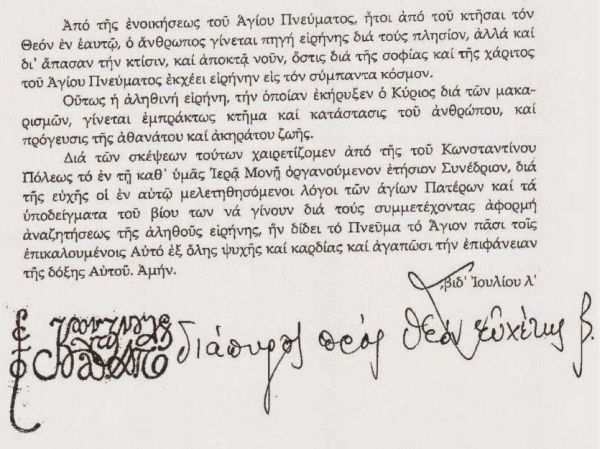 Ἀπό τῆς ἐνοικήσεως τοῦ Ἁγίου Πνεύματος, ἤτοι ἀπό τοῦ κτῆσαι τόν
Θεόν ἐν ἑαυτῷ, ὁ ἄνθρωπος γίνεται πηγή εἰρήνης διά τούς πλησίον, ἀλλά καί
δι' ἅπασαν τήν κτίσιν, καί ἀποκτᾷ νοῦν, ὅστις διά τῆς σοφίας καί τῆς χάριτος
τοῦ Ἁγίου Πνεύματος ἐκχέει εἰρήνην εἰς τόν σύμπαντα κόσμον.
Οὕτως ἡ ἀληθινή εἰρήνη, τήν ὁποίαν ἐκήρυξεν ὁ Κύριος διά τῶν μακα-
ρισμῶν, γίνεται ἐμπράκτως κτῆμα καί κατάστασις τοῦ ἀνθρώπου, καί
πρόγευσις τῆς ἀθανάτου καί ἀκηράτου ζωῆς.
Διά τῶν σκέψεων τούτων χαιρετίζομεν ἀπό τῆς τοῦ Κωνσταντίνου
Πόλεως τό ἐν τῇ καθ' ὑμᾶς Ἱερᾷ Μονῇ ὀργανούμενον ἐτήσιον Συνέδριον, διά
τῆς εὐχῆς οἱ ἐν αὐτῷ μελετηθησόμενοι λόγοι τῶν ἁγίων Πατέρων καί τά
ὑποδείγματα τοῦ βίου των νά γίνουν διά τούς συμμετέχοντας ἀφορμή
ἀναζητήσεως τῆς ἀληθοῦς εἰρήνης, ἥν δίδει τό Πνεῦμα τό Ἅγιον πᾶσι τοῖς
ἐπικαλουμένοις Αὐτό ἐξ ὅλης ψυχῆς καί καρδίας καί ἀγαπῶσι τήν ἐπιφάνειαν
τῆς δόξης Αὐτοῦ. Ἀμήν.
͵βιδ' Ἰουλίου λ'
διάπυρος πρός Θεόν εὐχέτης β.